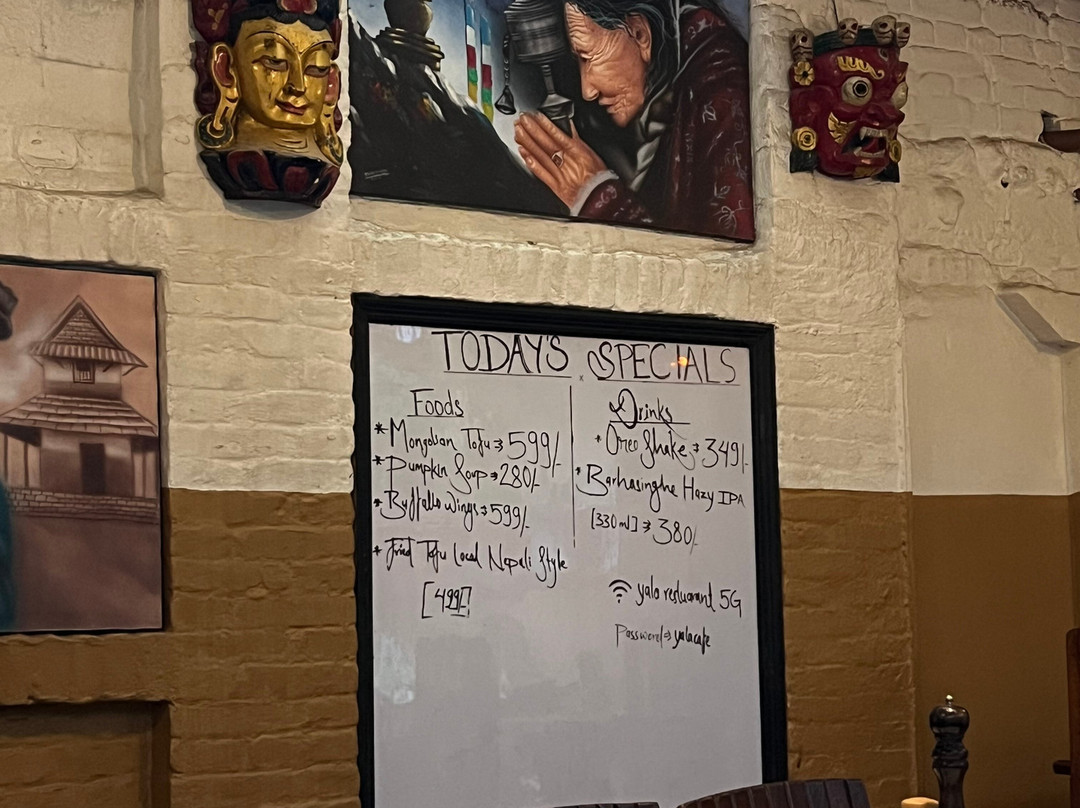 TODAY'S SPECIALS
Foods
* Mongolian Tofu → 599/-
* Pumpkin Soup → 280/-
* Buffallo wings → 599/-
* Fried Tofu Local Nepali Style
[499/-]
Drinks
* Oreo Shake → 349/-
* Barhasinghe Hazy IPA
[330 ml] → 380/-
yala restuarant 5G
Password → yalacafe